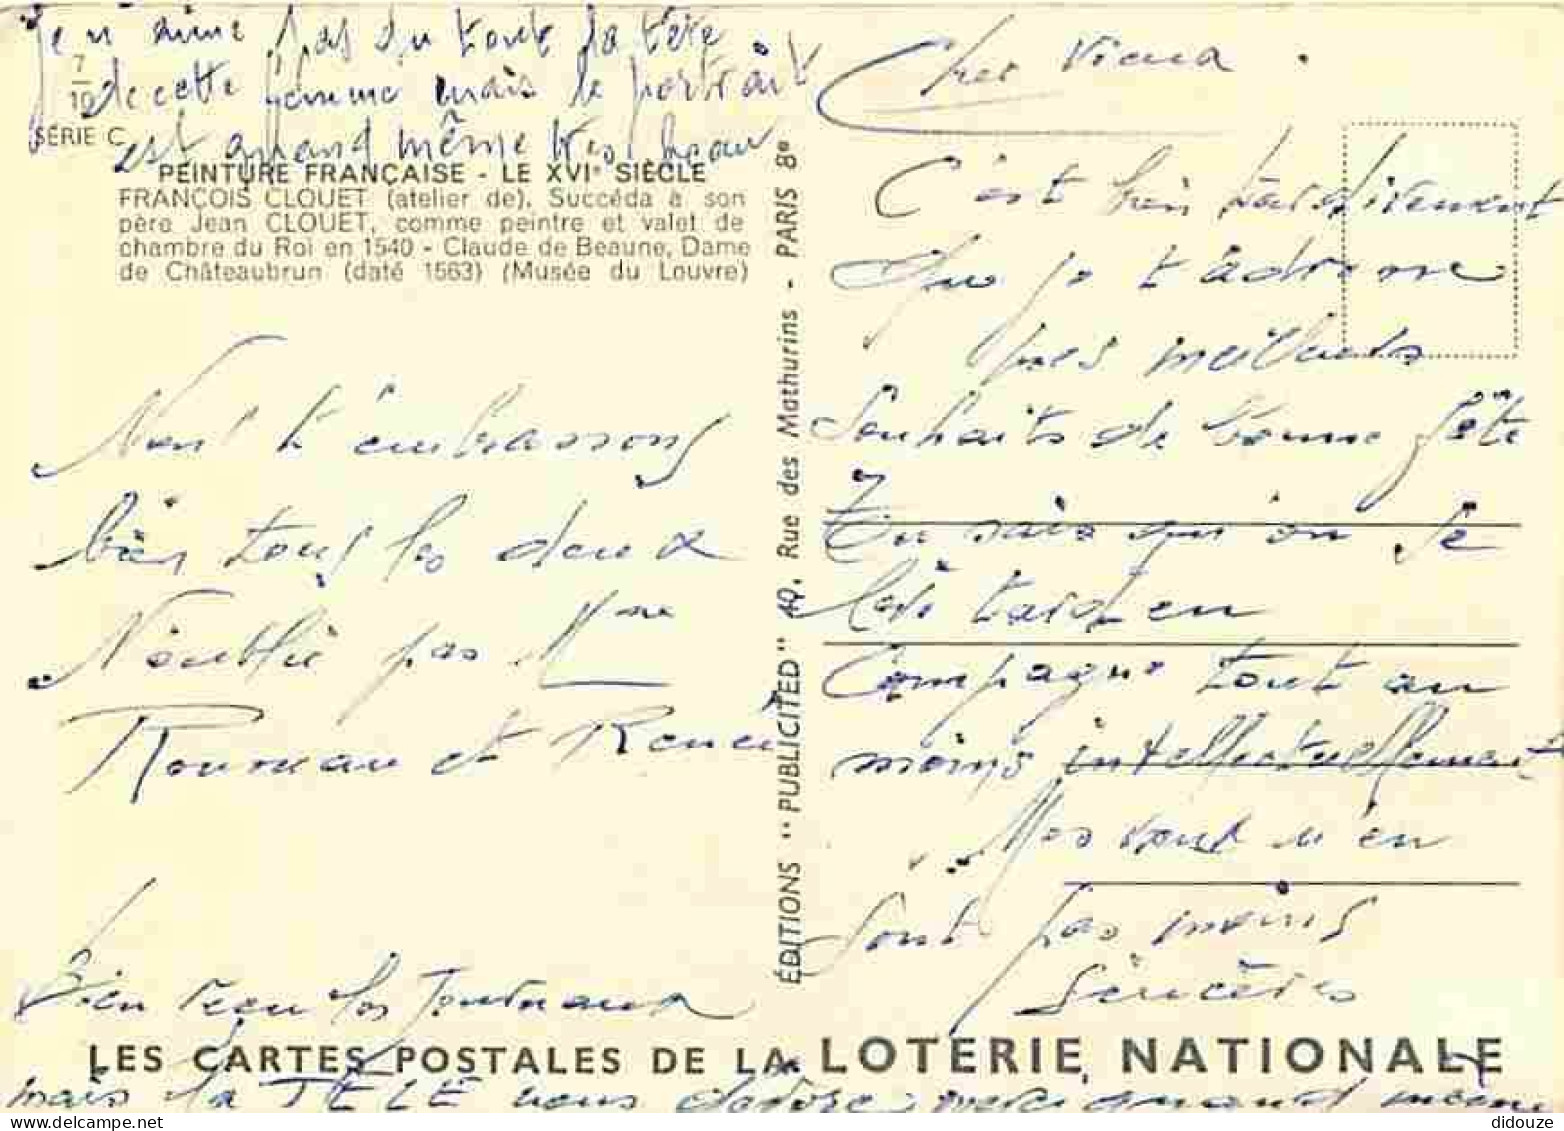 Je n'aime pas du tout la tête
de cette femme mais le portrait
est quand même très beau
7/10
SÉRIE C
PEINTURE FRANÇAISE - LE XVIe SIÈCLE
FRANÇOIS CLOUET (atelier de). Succéda à son
père Jean CLOUET, comme peintre et valet de
chambre du Roi en 1540 - Claude de Beaune, Dame
de Châteaubrun (daté 1563) (Musée du Louvre)
t'embrassons
bien tous les deux
N'oublie pas Mme
et Renée
Bien reçu les Journaux
mais la TÉLÉ nous quand même
ÉDITIONS "PUBLICITED" 40, Rue des Mathurins - PARIS 8e
Cher
C'est bien tardivement
que je t'adresse
mes meilleurs
Souhaits de bonne fête
Tu sais qu'on se
tard en
Campagne tout au
moins intellectuellement
Mes n'en
Sont pas moins
Sincères
LES CARTES POSTALES DE LA LOTERIE NATIONALE
didouze